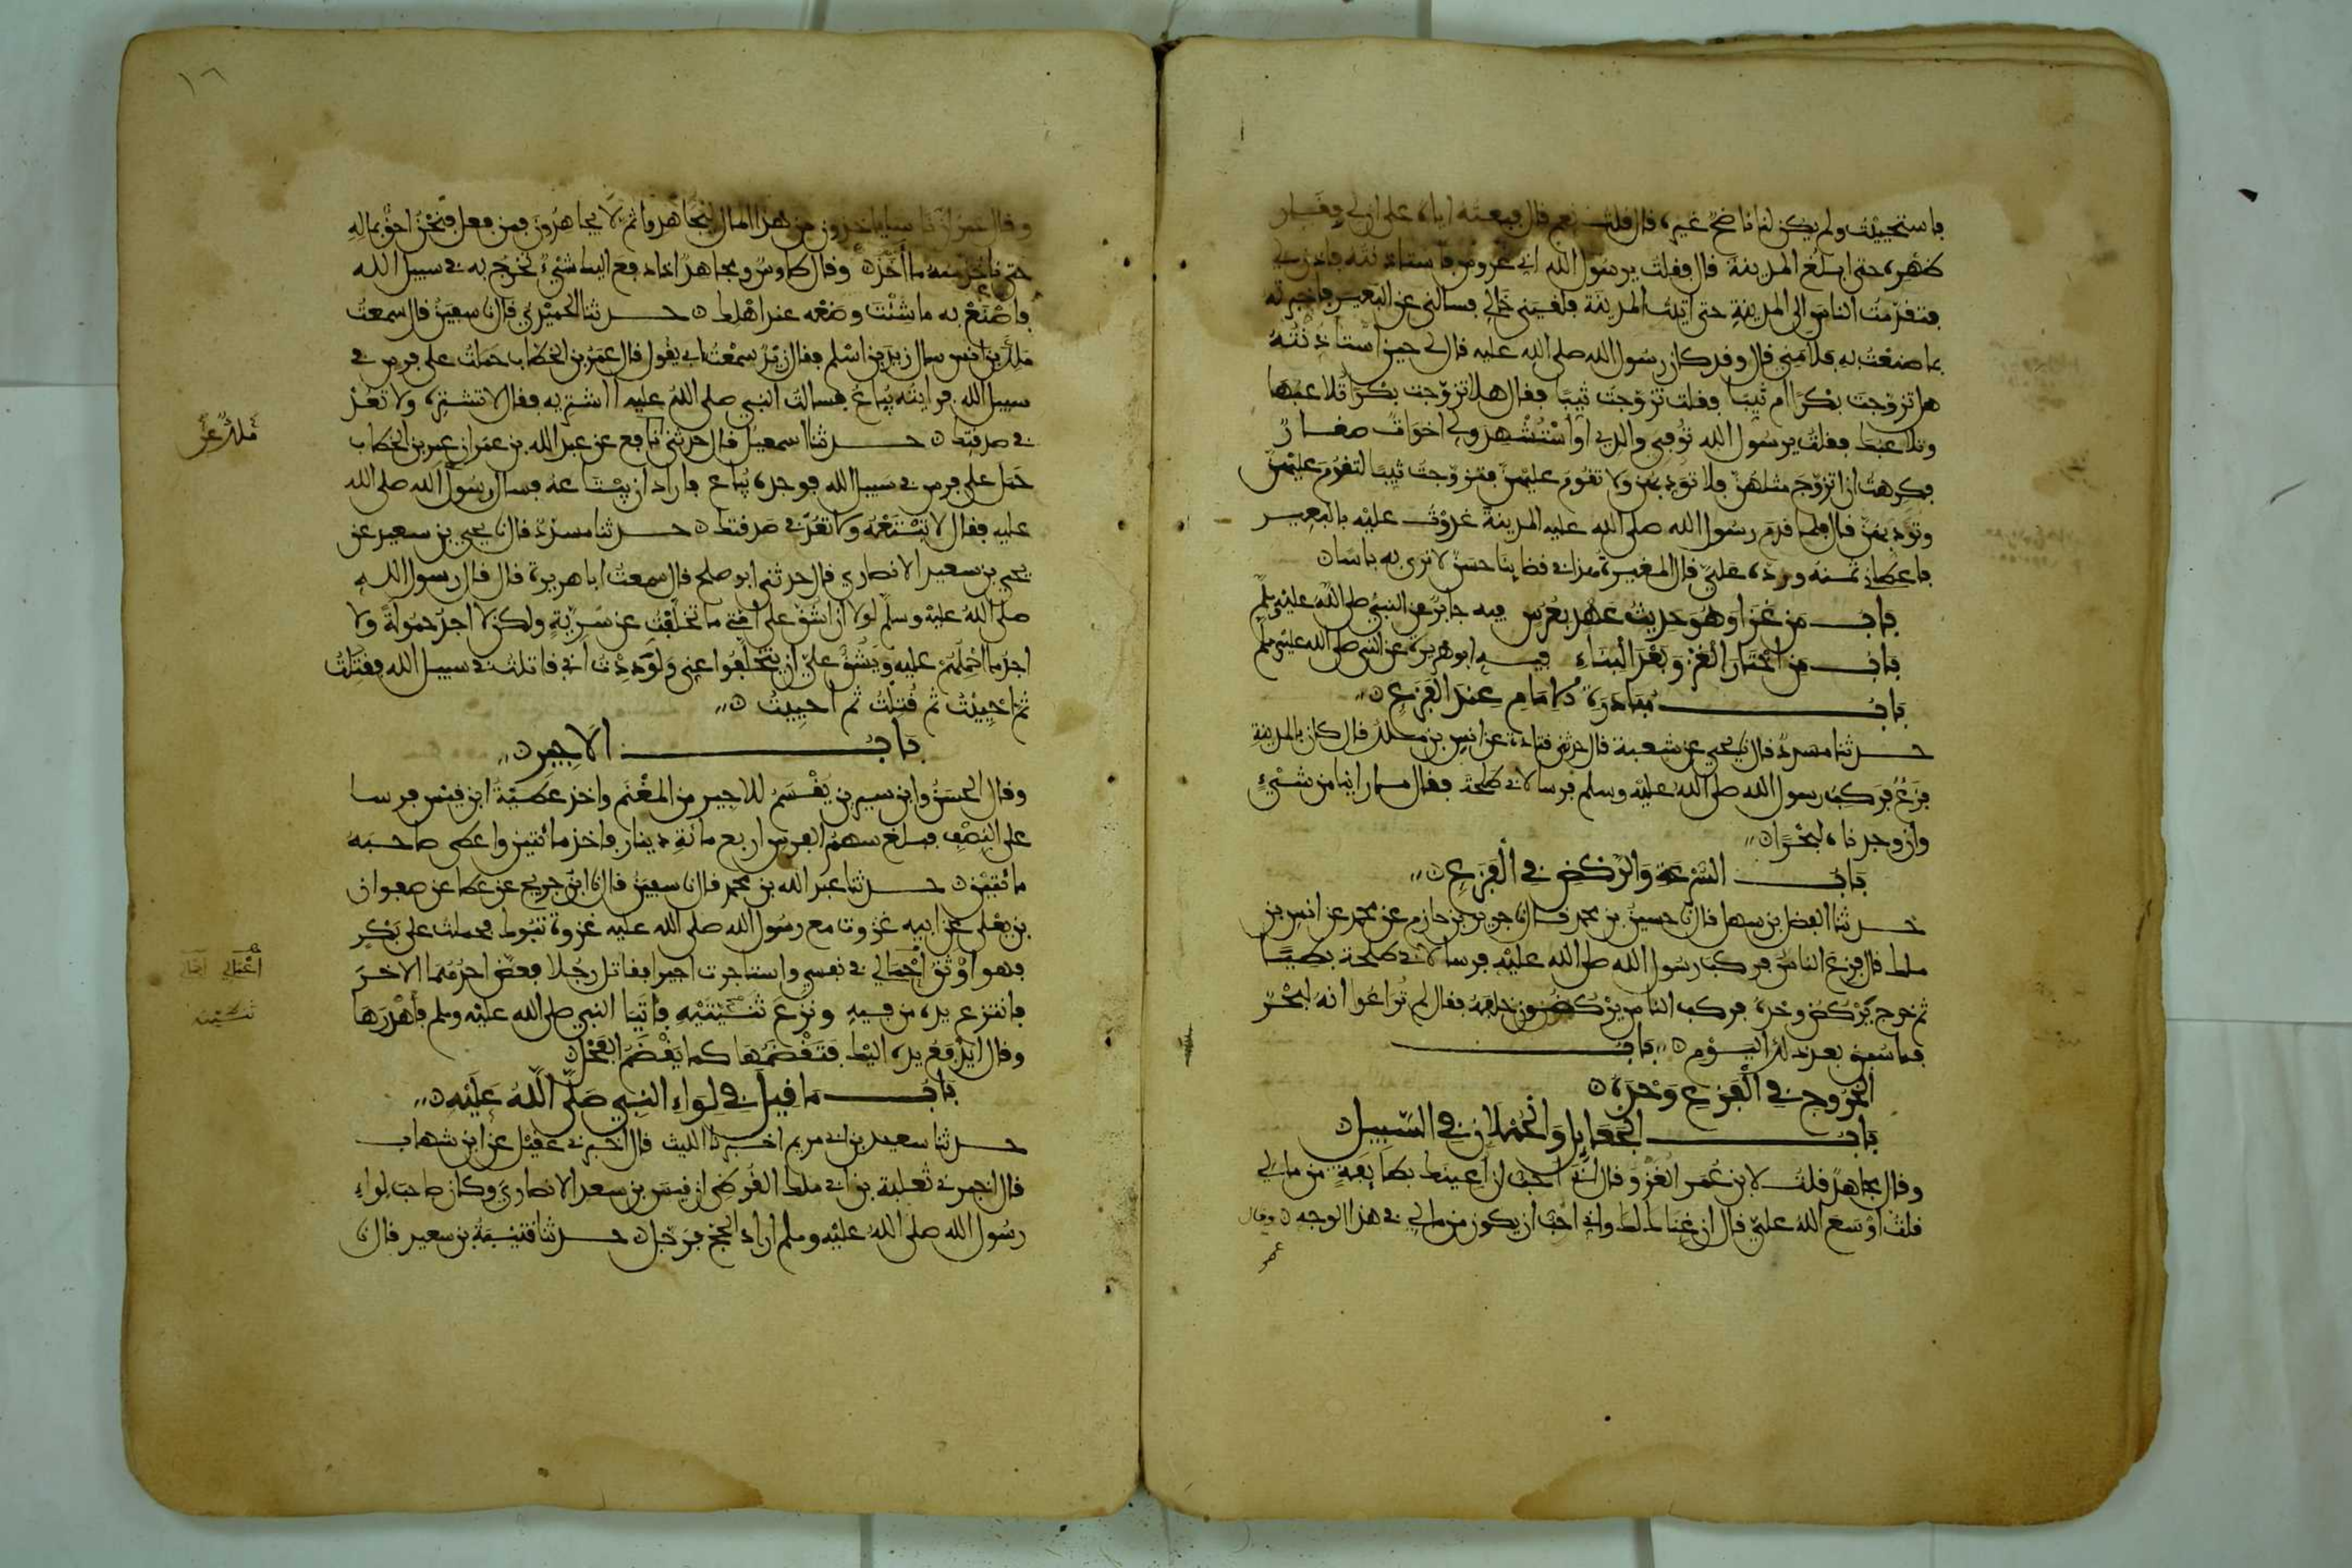 فاستحييت ولم يكن لنا ناضح غيره قال قلت نعم قال فبعته اياه على ان لي فقار
ظهره حتى ابلغ المدينة قال فقلت يرسول الله اني عروس فاستاذنته فاذن لي
فتقدمت الناس الى المدينة حتى اتيت المدينة فلقيني خالي فسالني عن البعير فاخبرته
بما صنعت به فلامني قال وقد كان رسول الله صلى الله عليه قال لي حين استاذنته
هل تزوجت بكرا ام ثيبا فقلت تزوجت ثيبا فقال هلا تزوجت بكرا تلاعبها
وتلاعبك فقلت يرسول الله توفي والدي او استشهد ولي اخوات صغار
فكرهت ان اتزوج مثلهن فلا تودبهن ولا تقوم عليهن فتزوجت ثيبا لتقوم عليهن
وتودبهن قال فلما قدم رسول الله صلى الله عليه المدينة غدوت عليه بالبعير
فاعطاني ثمنه ورده علي قال المغيرة هذا في قضاينا حسن لا نرى به باسا
باب من غزا وهو حديث عهد بعرس فيه جابر عن النبي صلى الله عليه وسلم
باب من اختار الغزو بعد البناء فيه ابو هريرة عن النبي صلى الله عليه وسلم
باب مبادرة الامام عند الفزع
حدثنا مسدد قال نا يحيى عن شعبة قال حدثني قتادة عن انس بن ملك قال كان بالمدينة
فزع فركب رسول الله صلى الله عليه وسلم فرسا لابي طلحة فقال ما راينا من شيء
وان وجدناه لبحرا
باب السرعة والركض في الفزع
حدثنا الفضل بن سهل قال نا حسين بن محمد قال نا جرير بن حازم عن محمد عن انس بن
ملك قال فزع الناس فركب رسول الله صلى الله عليه فرسا لابي طلحة بطيا
ثم خرج يركض وحده فركب الناس يركضون خلفه فقال لم تراعوا انه لبحر
فما سبق بعد ذلك اليوم باب
الخروج في الفزع وحده
باب الجعايل والحملان في السبيل
وقال مجاهد قلت لابن عمر الغزو قال اني احب ان اعينك بطايفة من مالي
قلت اوسع الله علي قال ان غناك لك واني احب ان يكون من مالي في هذا الوجه وقال
عمر
١٦
وقال عمر ان ناسا ياخذون من هذا المال ليجاهدوا ثم لا يجاهدون فمن فعل فنحن احق بماله
حتى ناخذ منه ما اخذ وقال طاوس ومجاهد اذا دفع اليك شيء تخرج به في سبيل الله
فاصنع به ما شئت وضعه عند اهلك حدثنا الحميدي قال نا سفين قال سمعت
ملك بن انس سال زيد بن اسلم فقال زيد سمعت ابي يقول قال عمر بن الخطاب حملت على فرس في
سبيل الله فرايته يباع فسالت النبي صلى الله عليه ااشتريه فقال لا تشتره ولا تعد
في صدقتك حدثنا اسمعيل قال حدثني نافع عن عبد الله بن عمر ان عمر بن الخطاب
ملك عن
حمل على فرس في سبيل الله فوجده يباع فاراد ان يبتاعه فسال رسول الله صلى الله
عليه فقال لا تبتعه ولا تعد في صدقتك حدثنا مسدد قال نا يحيى بن سعيد عن
يحيى بن سعيد الانصاري قال حدثني ابو صلح قال سمعت ابا هريرة قال قال رسول الله
صلى الله عليه وسلم لولا ان اشق على امتي ما تخلفت عن سرية ولكن لا اجد حمولة ولا
اجد ما احملهم عليه ويشق علي ان يتخلفوا عني ولوددت اني قاتلت في سبيل الله فقتلت
ثم احييت ثم قتلت ثم احييت
باب الاجير
وقال الحسن وابن سيرين يقسم للاجير من المغنم واخذ عطية ابن قيس فرسا
على النصف فبلغ سهم الفرس اربع مائة دينار فاخذ مائتين واعطى صاحبه
مائتين حدثنا عبد الله بن محمد قال نا سفين قال نا ابن جريج عن عطا عن صفوان
بن يعلى عن ابيه غزوت مع رسول الله صلى الله عليه غزوة تبوك فحملت على بكر
فهو اوثق اجمالي في نفسي واستاجرت اجيرا فقاتل رجلا فعض احدهما الاخر
اعمالي
فانتزع يده من فيه ونزع ثنيتيه فاتيا النبي صلى الله عليه وسلم فاهدرها
ثنيته
وقال ايدفع يده اليك فتقضمها كما يقضم الفحل
باب ما قيل في لواء النبي صلى الله عليه
حدثنا سعيد بن ابي مريم اخبرنا الليث قال اخبرني عقيل عن ابن شهاب
قال اخبرني ثعلبة بن ابي ملك القرظي ان قيس بن سعد الانصاري وكان صاحب لواء
رسول الله صلى الله عليه وسلم اراد الحج فرجل حدثنا قتيبة بن سعيد قال نا